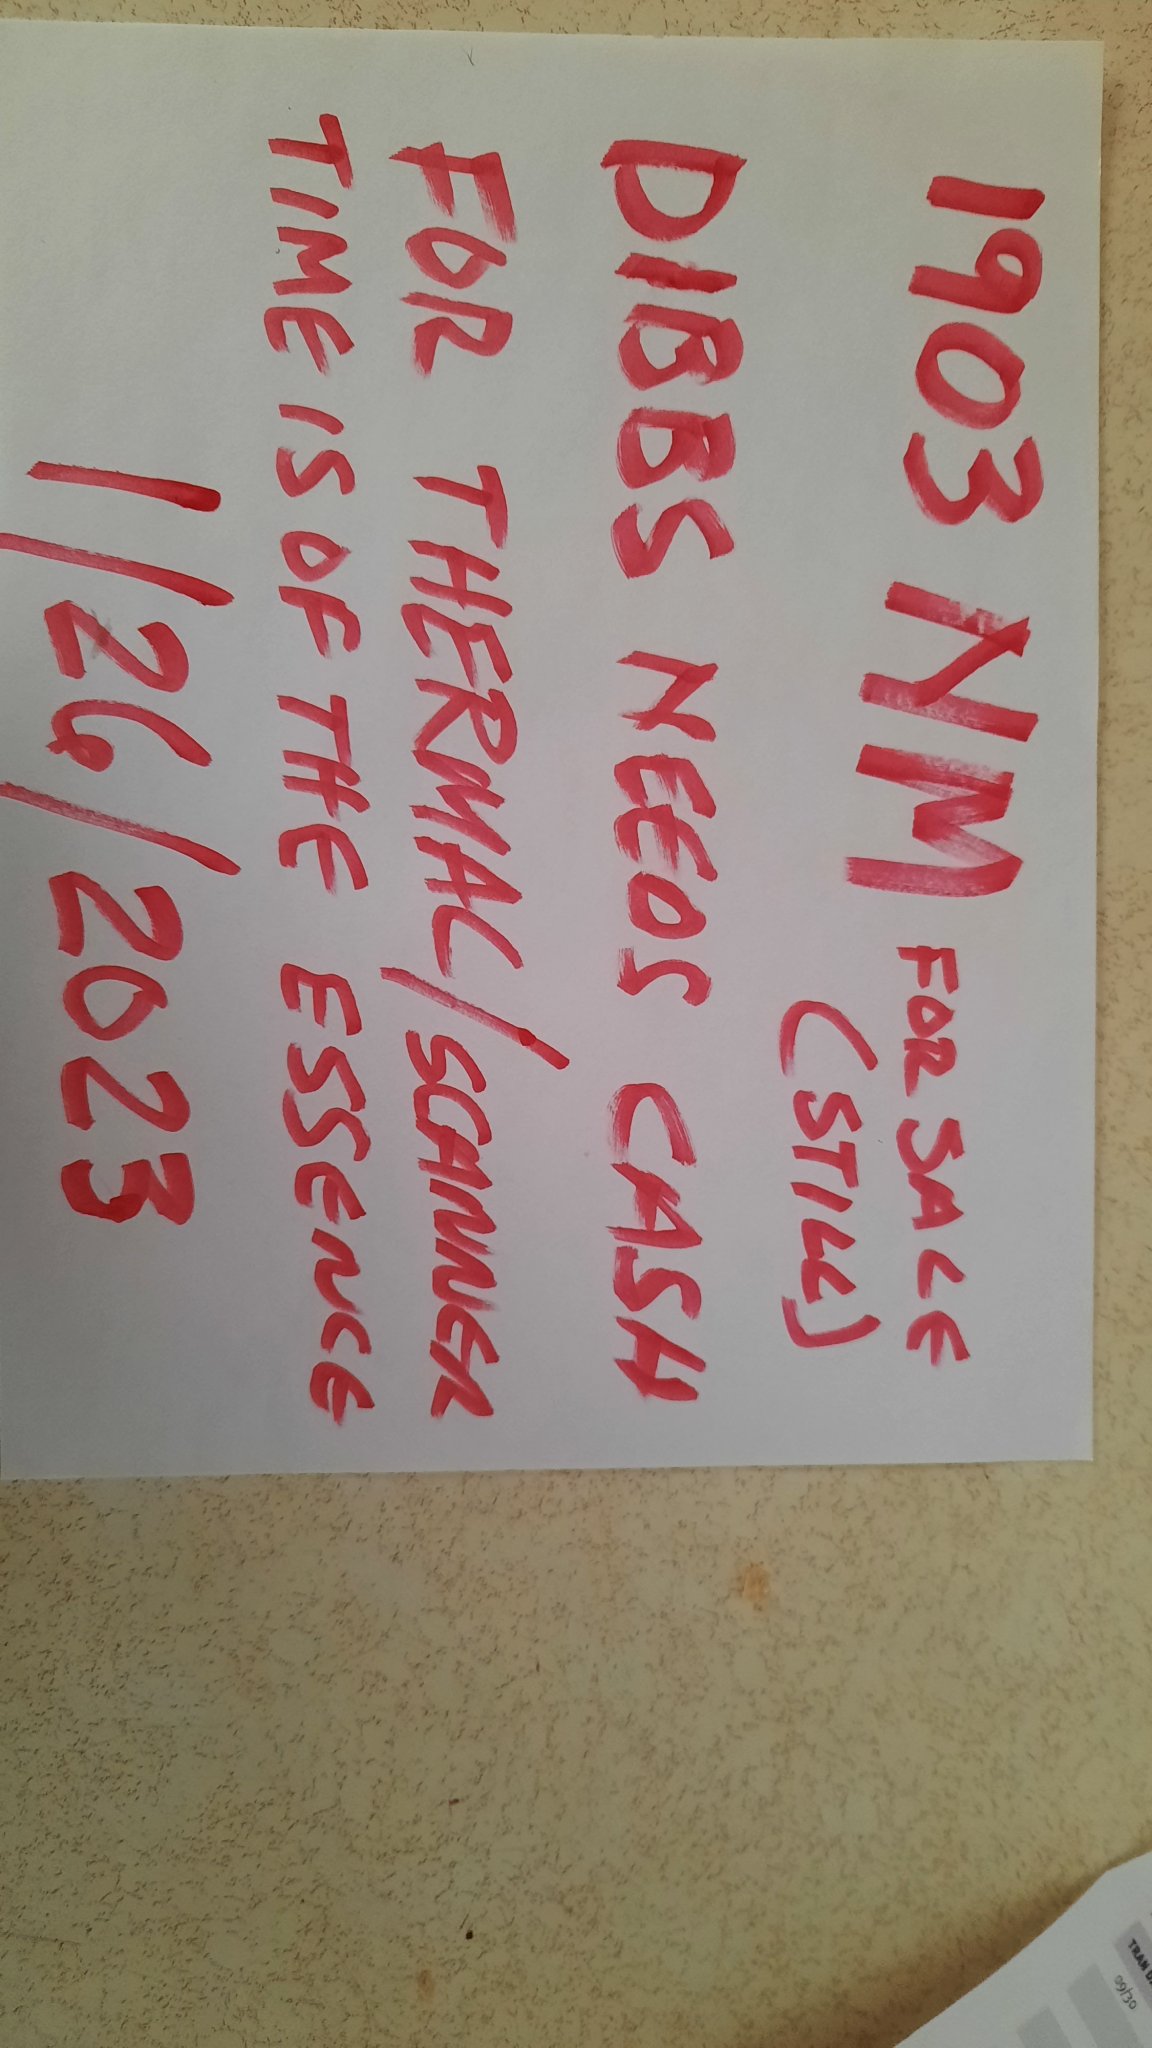 1903 NM FOR SALE
(STILL)
DIBBS NEEDS CASH
FOR THERMAL/SCANNER
TIME IS OF THE ESSENCE
1/26/2023
TRAN D
09/30